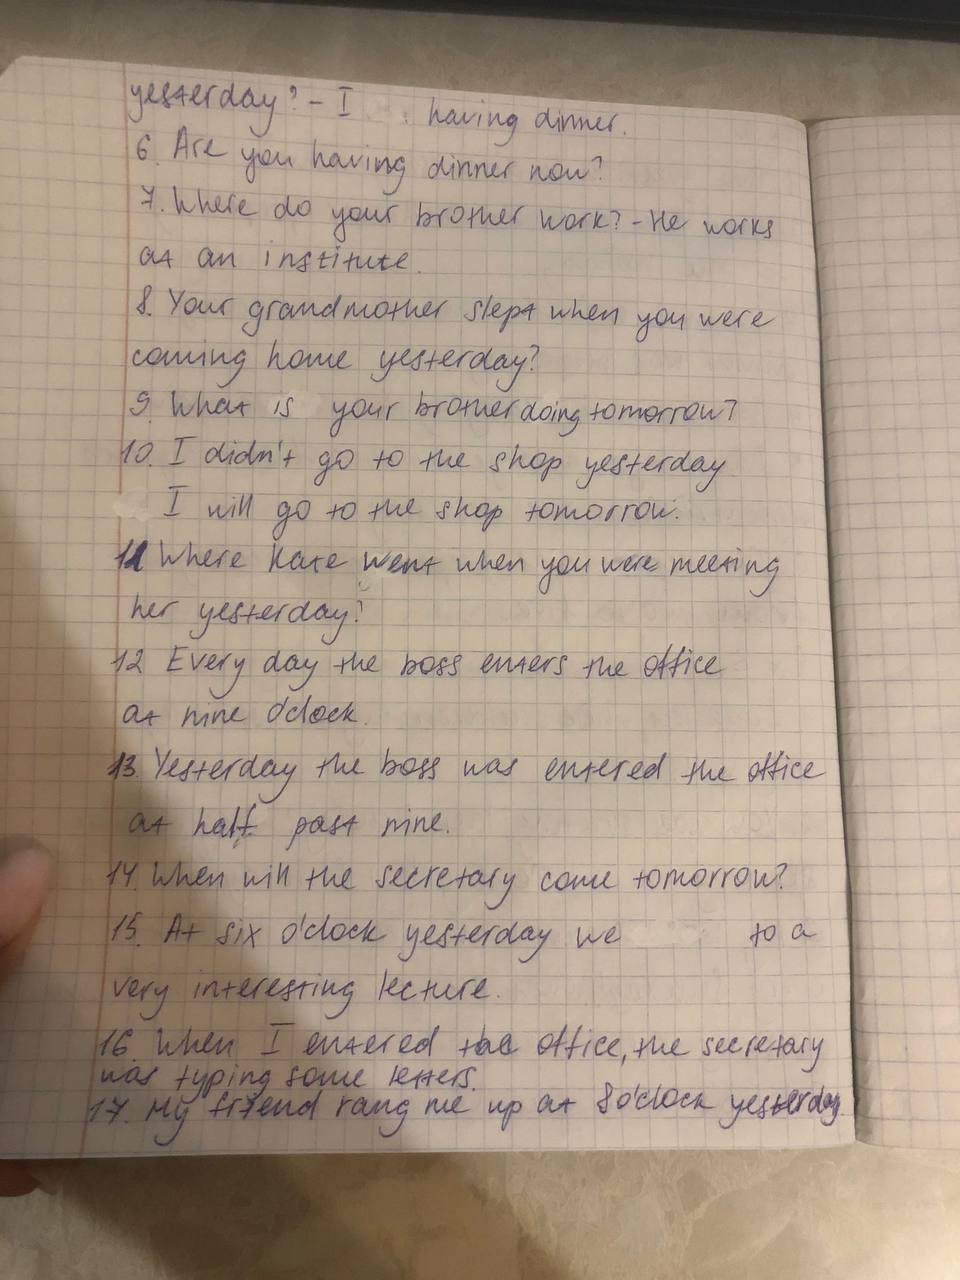 yesterday? - I having dinner.
6. Are you having dinner now?
7. Where do your brother work? - He works
at an institute.
8. Your grandmother slept when you were
coming home yesterday?
9. What is your brother doing tomorrow?
10. I didn't go to the shop yesterday
I will go to the shop tomorrow.
11 Where Kate went when you were meeting
her yesterday?
12 Every day the boss enters the office
at nine o'clock.
13. Yesterday the boss was entered the office
at half past nine.
14. When will the secretary come tomorrow?
15. At six o'clock yesterday we to a
very interesting lecture.
16. When I entered the office, the secretary
was typing some letters.
17. My friend rang me up at 8 o'clock yesterday.